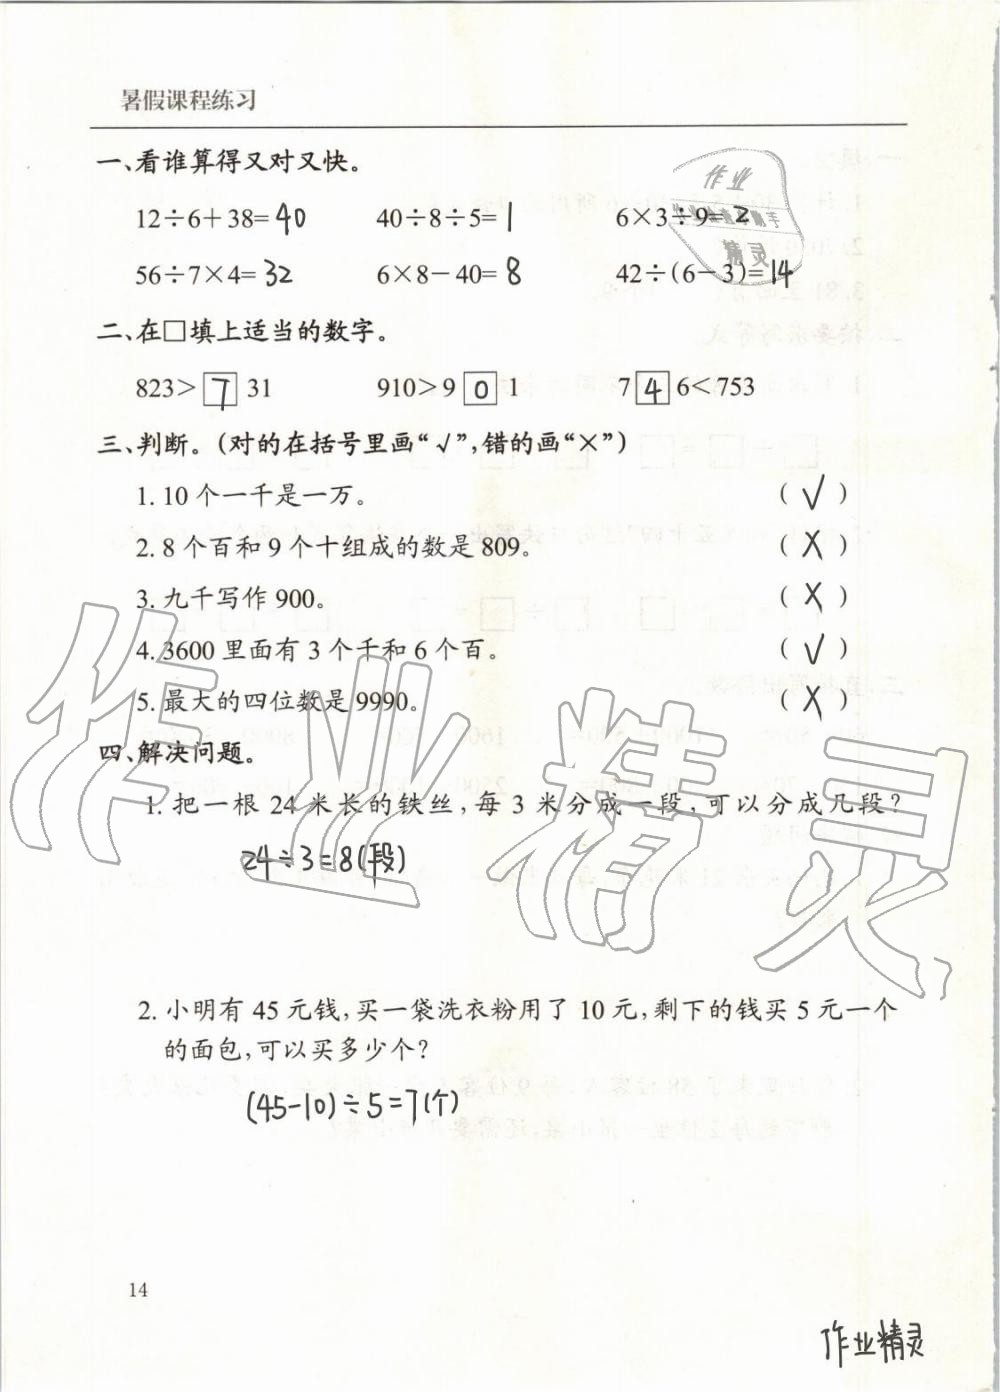 暑假课程练习
一、看谁算得又对又快。
12÷6+38=40 40÷8÷5=1 6×3÷9=2
56÷7×4=32 6×8-40=8 42÷(6-3)=14
二、在□填上适当的数字。
823>7 31 910>9 0 1 7 4 6<753
三、判断。(对的在括号里画“√”,错的画“×”)
1. 10 个一千是一万。 (√)
2. 8 个百和 9 个十组成的数是 809。 (×)
3. 九千写作 900。 (×)
4. 3600 里面有 3 个千和 6 个百。 (√)
5. 最大的四位数是 9990。 (×)
四、解决问题。
1. 把一根 24 米长的铁丝,每 3 米分成一段,可以分成几段?
24÷3=8(段)
2. 小明有 45 元钱,买一袋洗衣粉用了 10 元,剩下的钱买 5 元一个
的面包,可以买多少个?
(45-10)÷5=7(个)
14
作业精灵
作业
精灵
作业精灵